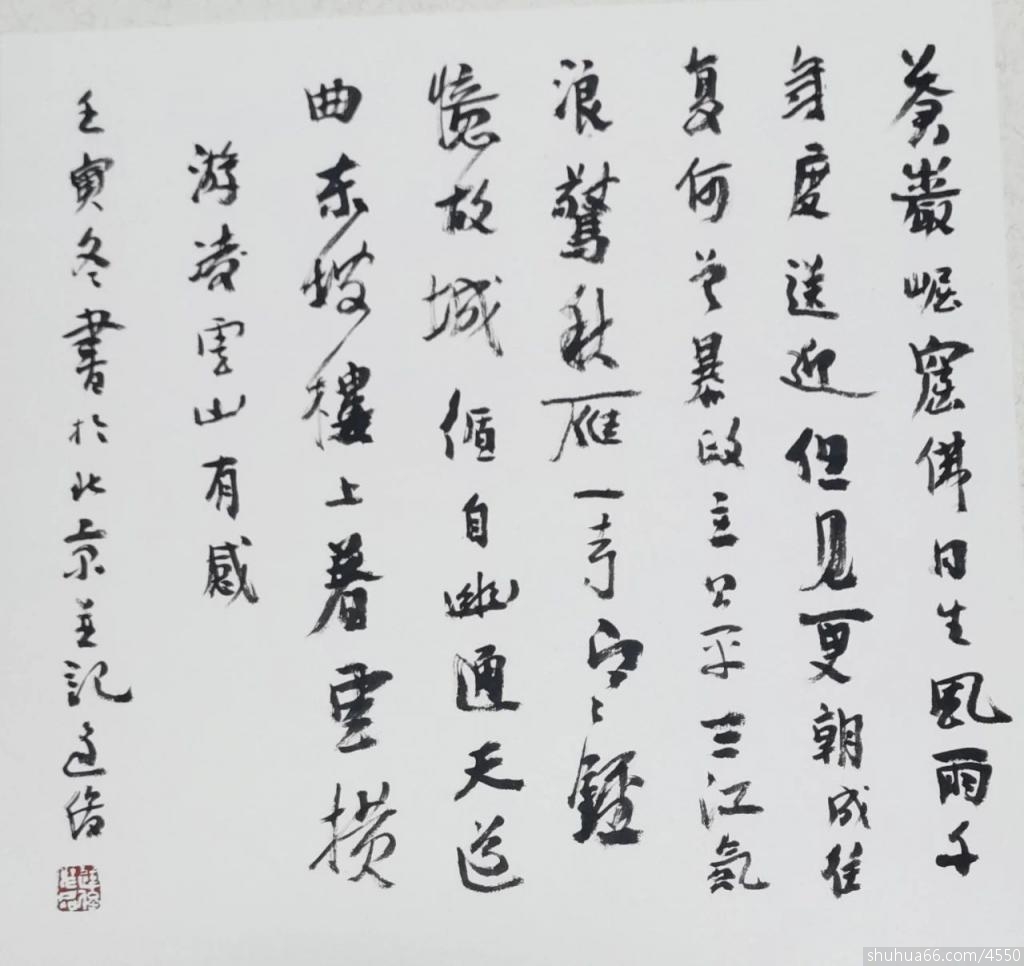 蒼巖崛窟佛日生風雨千
年度送迎但見更朝成往
复何曾暴政主公平三江氣
浪驚秋雁一
憶故城循自幽通天道
曲東坡樓上暮雲横
游凌雲山有感
壬寅冬書於北京並記
shuhua66.com/4550